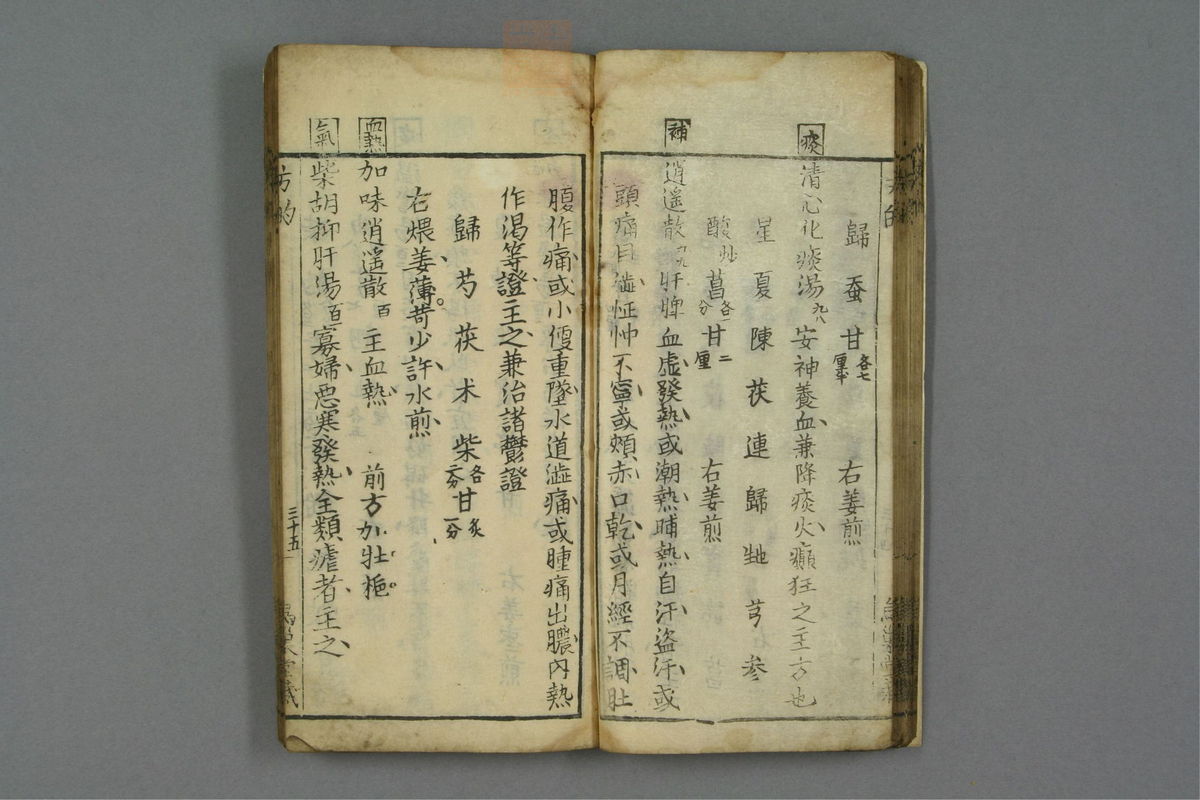 歸 蚕 甘 各七厘半 右姜煎
痰
清心化痰湯 九八 安神養血兼降痰火癲狂之主方也
星 夏 陳 茯 連 歸 芎 参
酸 炒 菖 各一分 甘 二厘 右姜煎
補
逍遥散 九九 肝脾血虛發熱或潮熱晡熱自汗盜汗或
頭痛目澁怔忡不寧或頰赤口乾或月經不調肚
腹作痛或小便重墜水道澁痛或腫痛出膿内熱
作渴等證主之兼治諸鬱證
歸 芍 茯 术 柴 各二分 甘 炙一分
右煨姜薄荷少許水煎
血熱
加味逍遥散 百 主血熱 前方加牡梔
氣
柴胡抑肝湯 百一 寡婦惡寒發熱全類瘧者主之
方的
三十五